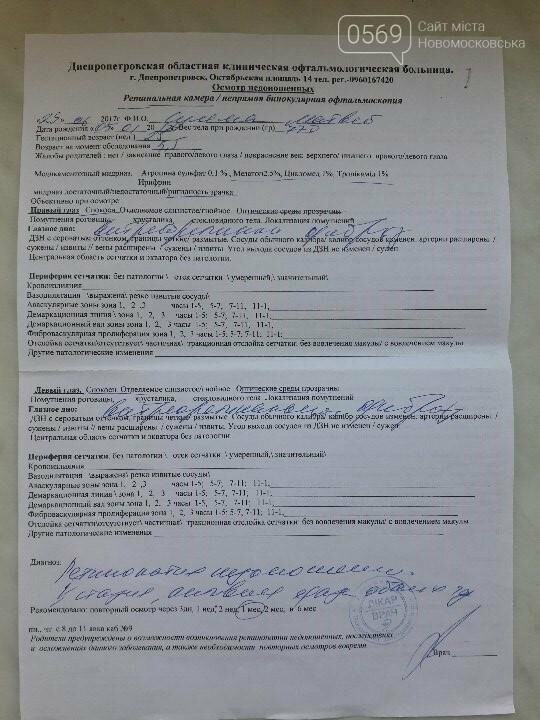 0569
Сайт міста
Новомосковська
Днепропетровская областная клиническая офтальмологическая больница.
г. Днепропетровск. Октябрьская площадь 14 тел. рег.-0960167420
Осмотр недоношенных
Ретинальная камера / непрямая бинокулярная офтальмоскопия
23 06 2017г Ф.И.О. Матвей
Дата рождения 09 01 20 Вес тела при рождении (гр) 770
Гестационный возраст (нед) 25
Возраст на момент обследования 5,5
Жалобы родителей : нет / закисание правого/левого глаза / покраснение век: верхнего/ нижнего правого/левого глаза
Медикаментозный мидриаз. Атропина сульфат 0,1 %, Мезатон2.5%, Цикломед 1%, Тропікамід 1%
Ирифрин
мидриаз достаточный/недостаточный/ригидность зрачка
Объективно при осмотре
Правый глаз Спокоен. Отделяемое слизистое/гнойное. Оптические среды прозрачны
Помутнения роговицы, хрусталика, стекловидного тела. Локализация помутнений
Глазное дно: фиброз
ДЗН с сероватым оттенком, границы четкие/ размытые. Сосуды обычного калибра/ калибр сосудов изменен. артерии расширены /
сужены / извиты // вены расширены / сужены / извиты. Угол выхода сосудов из ДЗН не изменен / сужен
Центральная область сетчатки и экватора без патологии
Периферия сетчатки: без патологии \ отек сетчатки \ умеренный \ значительный\
Кровоизлияния
Вазодилятация \выражена\ резко извитые сосуды\
Аваскулярные зоны зона 1, 2 ,3 часы 1-5, 5-7, 7-11, 11-1,
Демаркационная линия \ зона 1, 2, 3 часы 1-5; 5-7, 7-11; 11-1;
Демаркационный вал зоны зона 1, 2, 3 часы 1-5; 5-7, 7-11; 11-1,
Фиброваскулярная пролиферация зона 1, 2, 3 часы 1-5; 5-7, 7-11; 11-1;
Отслойка сетчатки\отсутствует\ частичная\ тракционная отслойка сетчатки без вовлечения макулы/ с вовлечением макулы
Другие патологические изменения
Левый глаз. Спокоен Отделяемое слизистое/ гнойное. Оптические среды прозрачны
Помутнения роговицы, хрусталика, стекловидного тела. Локализация помутнений
Глазное дно: фиброз
ДЗН с сероватым оттенком, границы четкие/ размытые. Сосуды обычного калибра/ калибр сосудов изменен. артерии расширены /
сужены / извиты // вены расширены / сужены / извиты. Угол выхода сосудов из ДЗН не изменен / сужен
Центральная область сетчатки и экватора без патологии
Периферия сетчатки: без патологии \ отек сетчатки \ умеренный\ значительный\
Кровоизлияния
Вазодилятация \выражена\ резко извитые сосуды\
Аваскулярные зоны зона 1, 2 ,3 часы 1-5; 5-7, 7-11; 11-1,
Демаркационная линия \ зона 1, 2, 3 часы 1-5; 5-7, 7-11; 11-1;
Демаркационный вал зоны зона 1, 2, 3 часы 1-5; 5-7, 7-11; 11-1;
Фиброваскулярная пролиферация зона 1, 2, 3 часы 1-5; 5-7, 7-11; 11-1,
Отслойка сетчатки\отсутствует\ частичная\ тракционная отслойка сетчатки без вовлечения макулы/ с вовлечением макулы
Другие патологические изменения
Диагноз:
Ретинопатия недоношенных
V стадия, активная фаза обоих глаз
ЛІКАР
ВРАЧ
Рекомендовано: повторный осмотр через 3дн, 1 нед, 2 нед, 1 мес, 2 мес, и 6 мес
пн., чт. с 8 до 11 авка каб №9
Родители предупреждены о возможности возникновения ретинопатии недоношенных, последствиях
и осложнениях данного заболевания, а также необходимости повторных осмотров вовремя
Врач